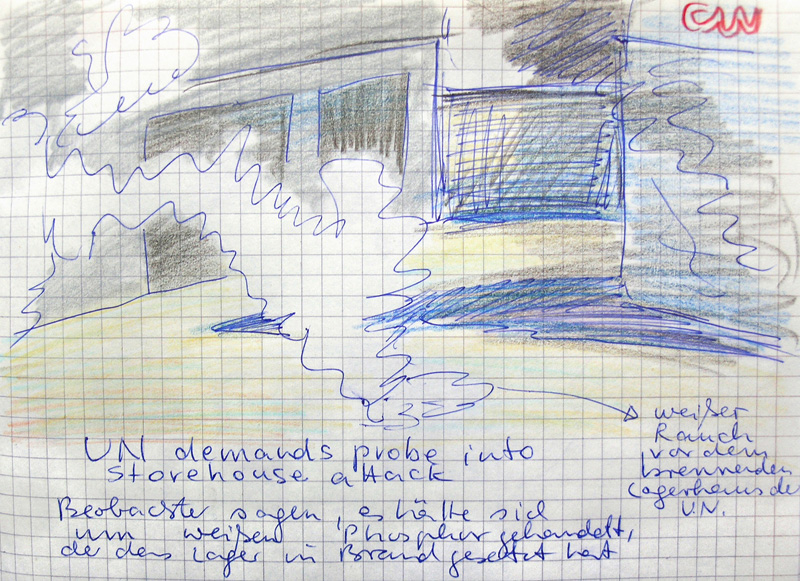 CNN
UN demands probe into
storehouse attack
Beobachter sagen, es hätte sich
um weißen Phosphor gehandelt,
der das Lager in Brand gesetzt hat
weißer
Rauch
vor dem
brennenden
Lagerhaus der
U.N.